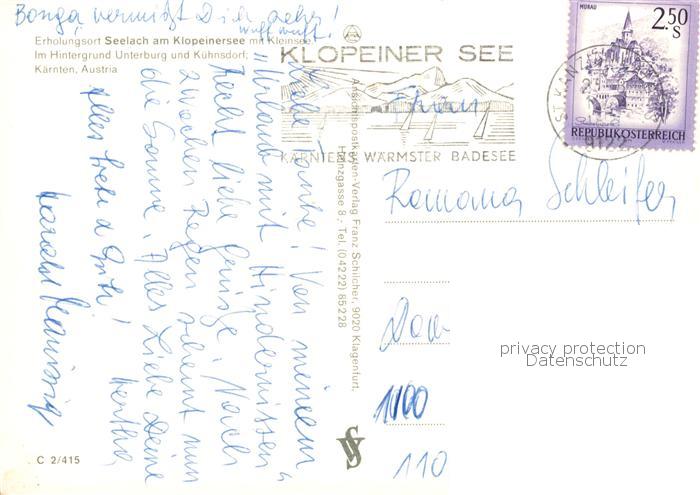 Bonga vermißt Dich sehr!
wuff wuff!
Erholungsort Seelach am Klopeinersee mit Kleinsee.
Im Hintergrund Unterburg und Kühnsdorf;
Kärnten, Austria
Liebe Tante! Von meinem
"Urlaub mit Hindernissen"
recht liebe Grüsse! Nach
2 Wochen Regen scheint nun
die Sonne. Alles Liebe Deine
Hertha
Alles Gute!
C 2/415
Ansichtspostkarten-Verlag Franz Schilcher, 9020 Klagenfurt,
Heinzgasse 8 - Tel. (04222) 85228
KLOPEINER SEE
KÄRNTENS WÄRMSTER BADESEE
MURAU
2.50 S
REPUBLIK ÖSTERREICH
ST. KANZIAN
9122
Frau
Romana Schleifer
1100
110
privacy protection
Datenschutz